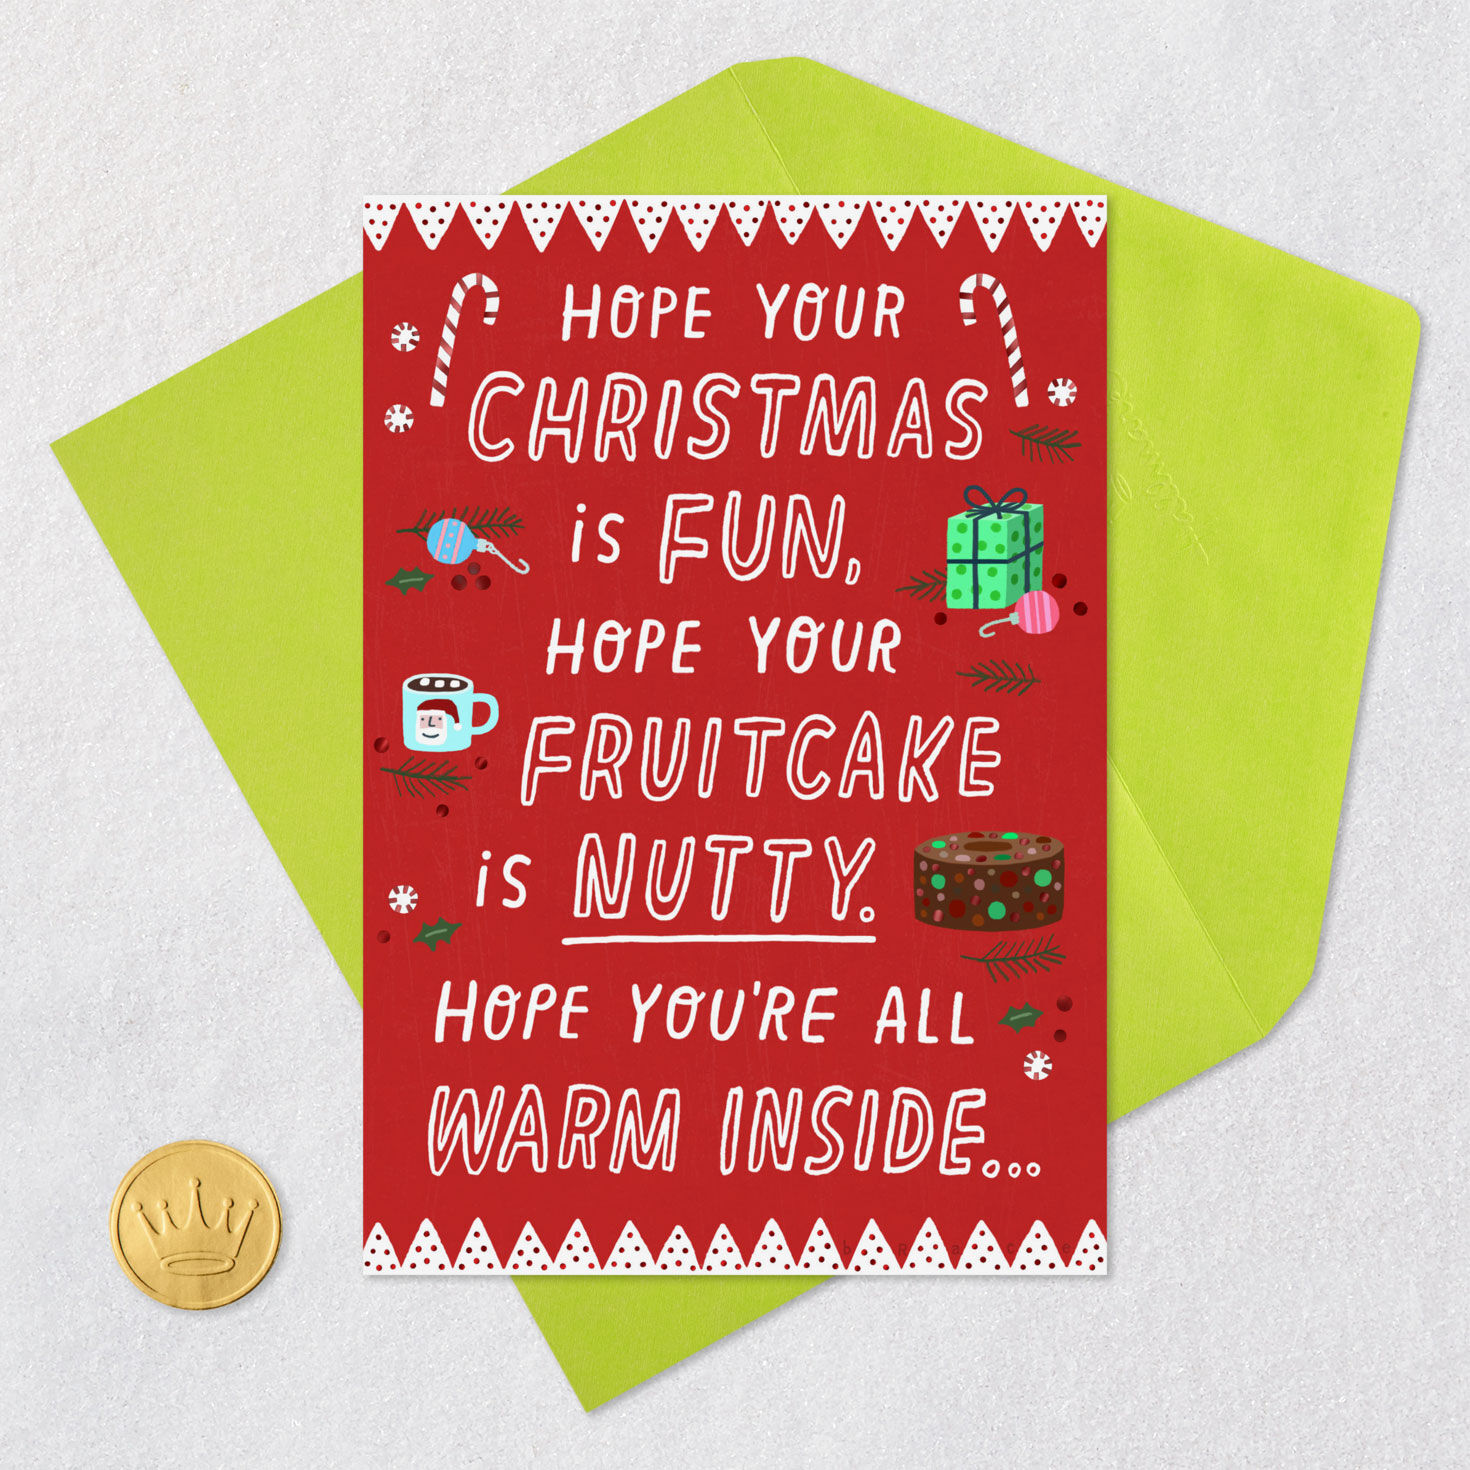 HOPE YOUR
CHRISTMAS
is FUN,
HOPE YOUR
FRUITCAKE
is NUTTY.
HOPE YOU'RE ALL
WARM INSIDE...